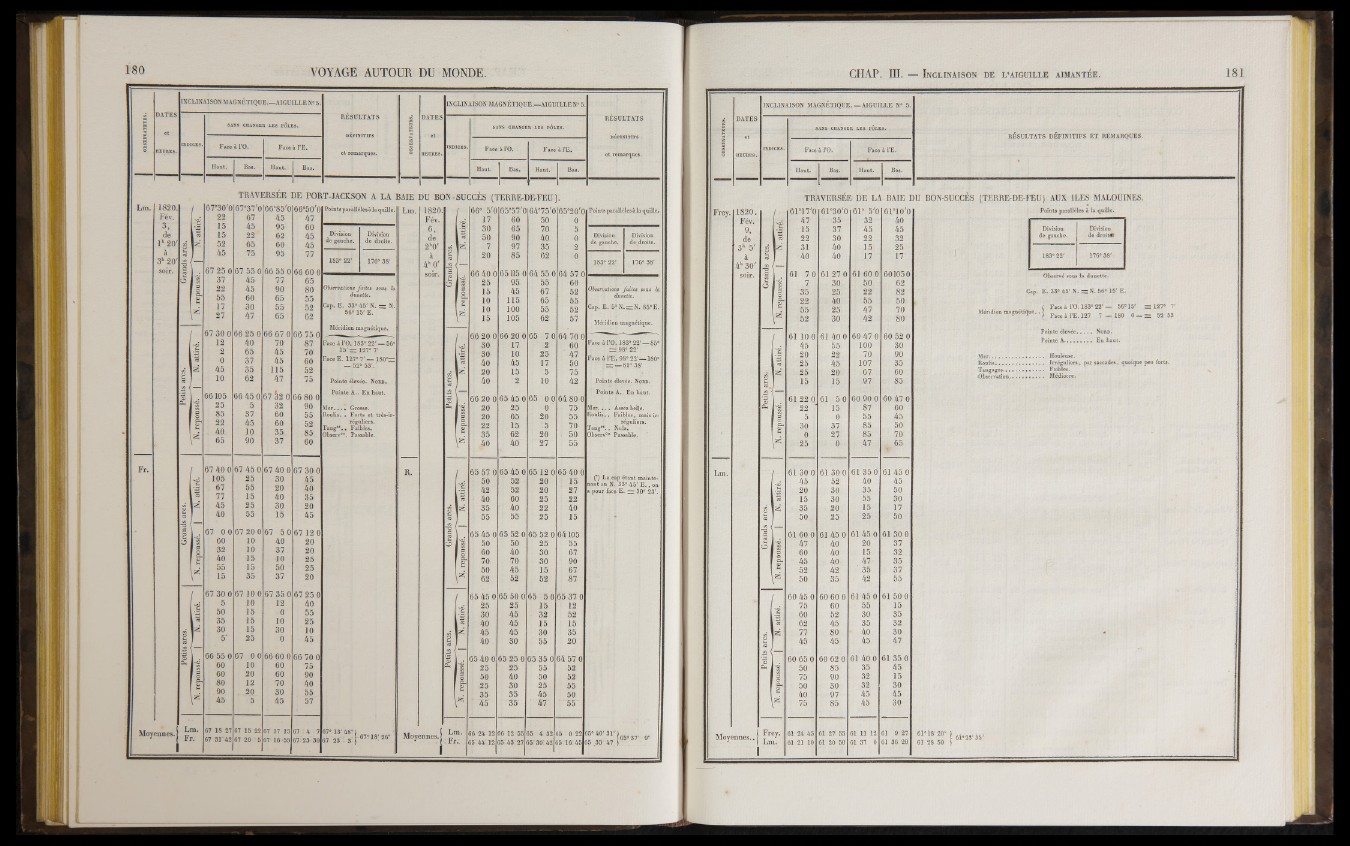 180 VOYAGE AUTOUR DU MONDE.
OBSERVATEURS.
DATES et HEURES.
INCLINAISON MAGNÉTIQUE.—AIGUILLE N° 5.
SANS CHANGER LES PÔLES.
INDICES.
Face à l'O. Face à l'E.
Haut. Bas. Haut. Bas.
RÉSULTATS
DÉFINITIFS
et remarques.
TRAVERSÉE DE PORT-JACKSON A LA BAIE DU BON-SUCCÈS (TERRE-DE-FEU).
Lm.
1820.
Fév.
3,
de
1h 20'
à
3h 20'
soir.
Grands arcs.
N. attiré.
67°30'0 67°37'0 66°85'0 66°50'0
22 67 45 47
15 45 95 60
15 22 62 45
52 65 60 45
45 75 95 77
N. repoussé.
67 25 0 67 55 0 66 55 0 66 60 0
37 45 77 65
22 45 90 80
55 60 65 55
17 30 55 52
27 47 65 62
Petits arcs.
N. attiré.
67 30 0 66 25 0 66 67 0 66 75 0
12 40 70 87
2 65 45 70
0 37 45 60
45 35 115 52
10 62 47 75
N. repoussé.
66 105 66 45 0 67 32 0 66 80 0
25 5 32 90
85 37 60 55
22 45 60 52
40 10 35 85
65 90 37 60
Points parallèles à la quille.
Division de gauche. Division de droite.
183° 22' 170° 38'
Observations faites sous la dunette.
Cap. E. 33° 45' N. = N. 56° 15' E.
Méridien magnétique.
Face à l'O. 183° 22' — 56° 15' = 127° 7'
Face E. 127° 7' — 180° = — 52° 53'.
Pointe élevée. Nord.
Pointe A.. En haut.
Mer..... Grosse.
Roulis.. Forts et très-irréguliers.
Tang.es.. Faibles.
Observ.on. Passable.
Fr.
67 40 0 67 45 0 67 40 0 67 30 0
105 25 30 45
67 55 20 40
77 15 40 35
45 25 30 20
40 55 15 45
67 0 0 67 20 0 67 5 0 67 12 0
60 10 40 20
32 10 37 20
40 15 10 25
55 15 50 25
15 35 37 20
67 30 0 67 10 0 67 35 0 67 25 0
5 10 12 40
50 15 0 55
35 15 10 25
30 15 30 10
5 25 0 45
66 55 0 67 0 0 66 60 0 66 70 0
60 10 60 75
60 20 60 90
80 12 70 40
90 20 30 55
45 5 45 57
Moyennes.
Lm. 67 18 27 67 15 22 67 17 15 67 4 7 67° 13' 48"
Fr. 67 31 42 67 20 5 67 16 55 67 23 30 67 23 2
67°18'26"
Lm.
1820.
Fév.
6,
de
2h0'
à
4h 0'
soir.
66° 5'0 65°57'0 64°75'0 65°20'0
17 60 50 0
30 65 70 5
50 90 40 0
7 97 35 2
20 85 62 0
66 40 0 65 85 0 64 55 0 64 57 0
25 95 55 60
15 45 67 52
10 115 65 55
10 100 55 52
15 105 62 57
66 20 0 66 20 0 65 7 0 64 70 0
30 17 2 60
30 10 25 47
40 45 17 50
20 15 5 75
40 2 10 42
66 20 0 65 45 0 65 0 0 64 80 0
20 25 0 75
20 65 20 55
22 15 5 70
35 62 20 50
40 40 27 55
Points parallèles à la quille.
Division de gauche. Division de droite.
183° 22' 170° 38'
Observations faites sous la dunette.
Méridien magnétique.
Pointe élevée. Nord.
Pointe A.. En haut.
Mer.... Assez belle.
Roulis.. Faibles, mais irréguliers.
Tang.es.. Nuls.
Observ.on Passable.
R.
65 57 0 65 45 0 65 12 0 65 40 0
50 52 20 15
42 52 20 27
40 60 25 22
35 40 22 40
55 55 25 15
65 45 0 65 52 0 65 52 0 64 105
50 50 25 55
60 40 30 67
70 70 30 90
50 45 15 67
62 52 52 87
65 45 0 65 50 0 65 5 0 65 37 0
25 25 15 12
30 45 32 52
40 45 15 15
45 45 30 35
40 30 55 20
65 40 0 65 25 0 65 35 0 64 57 0
25 25 55 52
50 40 50 52
25 30 25 55
35 35 45 50
45 35 47 55
Moyennes.
Lm. 66 24 12 66 12 55 65 4 32 65 0 22 65° 40' 31"
Fr. 65 44 12 65 43 27 65 36 42 65 16 45 65 35 47
65° 37' 9"
CHAP. III. — INCLINAISON DE L'AIGUILLE AIMANTÉE. 181
OBSERVATEURS.
DATES et HEURES.
INCLINAISON MAGNÉTIQUE.—AIGUILLE N° 5.
SANS CHANGER LES PÔLES.
INDICES.
Face à l'O. Face à l'E.
Haut. Bas. Haut. Bas.
RÉSULTATS DÉFINITIFS ET REMARQUES.
TRAVERSÉE DE LA BAIE DU BON-SUCCÈS (TERRE-DE-FEU) AUX ILES MALOUINES.
Frey.
1820.
Fév.
9,
de
3h 5'
à
4h 30'
soir.
61°17'0 61°30'0 61° 5'0 61°10'0
47 35 52 40
15 37 45 45
22 30 22 32
31 40 15 25
40 40 17 17
61 7 0 61 27 0 61 60 0 60 105 0
7 30 50 62
35 25 22 82
22 40 55 50
55 25 47 70
52 30 42 80
61 10 0 61 40 0 60 47 0 60 52 0
45 55 100 30
20 22 70 90
25 45 107 35
25 20 67 60
15 15 97 85
61 22 0 61 5 0 60 90 0 60 47 0
22 15 87 60
5 0 55 45
30 57 85 50
0 27 85 70
25 0 47 65
Points parallèles à la quille.
Division de gauche. Division de droite.
183° 22' 170° 38'.
Observé sous la dunette.
Cap. E. 33° 45' N. = N. 56° 15' E.
Méridien magnétique..
Face à l'O. 183° 22' — 56°15' = 127° 7'
Face à l'E. 127 7 — 180 0 = — 52 53
Pointe élevée..... Nord.
Pointe A......... En haut.
Mer............... Houleuse.
Roulis............... Irréguliers, par saccades, quoique peu forts.
Tangages............ Faibles.
Observation.......... Médiocre.
Lm.
61 30 0 61 30 0 61 35 0 61 45 0
45 52 40 45
20 30 35 50
15 30 35 30
35 20 15 17
50 25 25 50
61 60 0 61 45 0 61 45 0 61 30 0
47 40 20 37
60 40 15 32
45 40 47 35
52 42 35 37
50 35 42 55
60 45 0 60 60 0 61 45 0 61 50 0
75 60 55 15
60 52 30 35
62 45 35 52
77 80 40 30
45 45 45 47
60 65 0 60 62 0 61 40 0 61 35 0
50 85 35 45
75 90 32 15
50 50 32 30
40 97 45 45
75 85 45 30
Moyennes..
Frey. 61 24 45 61 27 55 61 11 12 61 9 27 61°18' 20"
Lm. 61 21 10 61 20 50 61 37 8 61 36 20 61 28 50
61°23' 35"